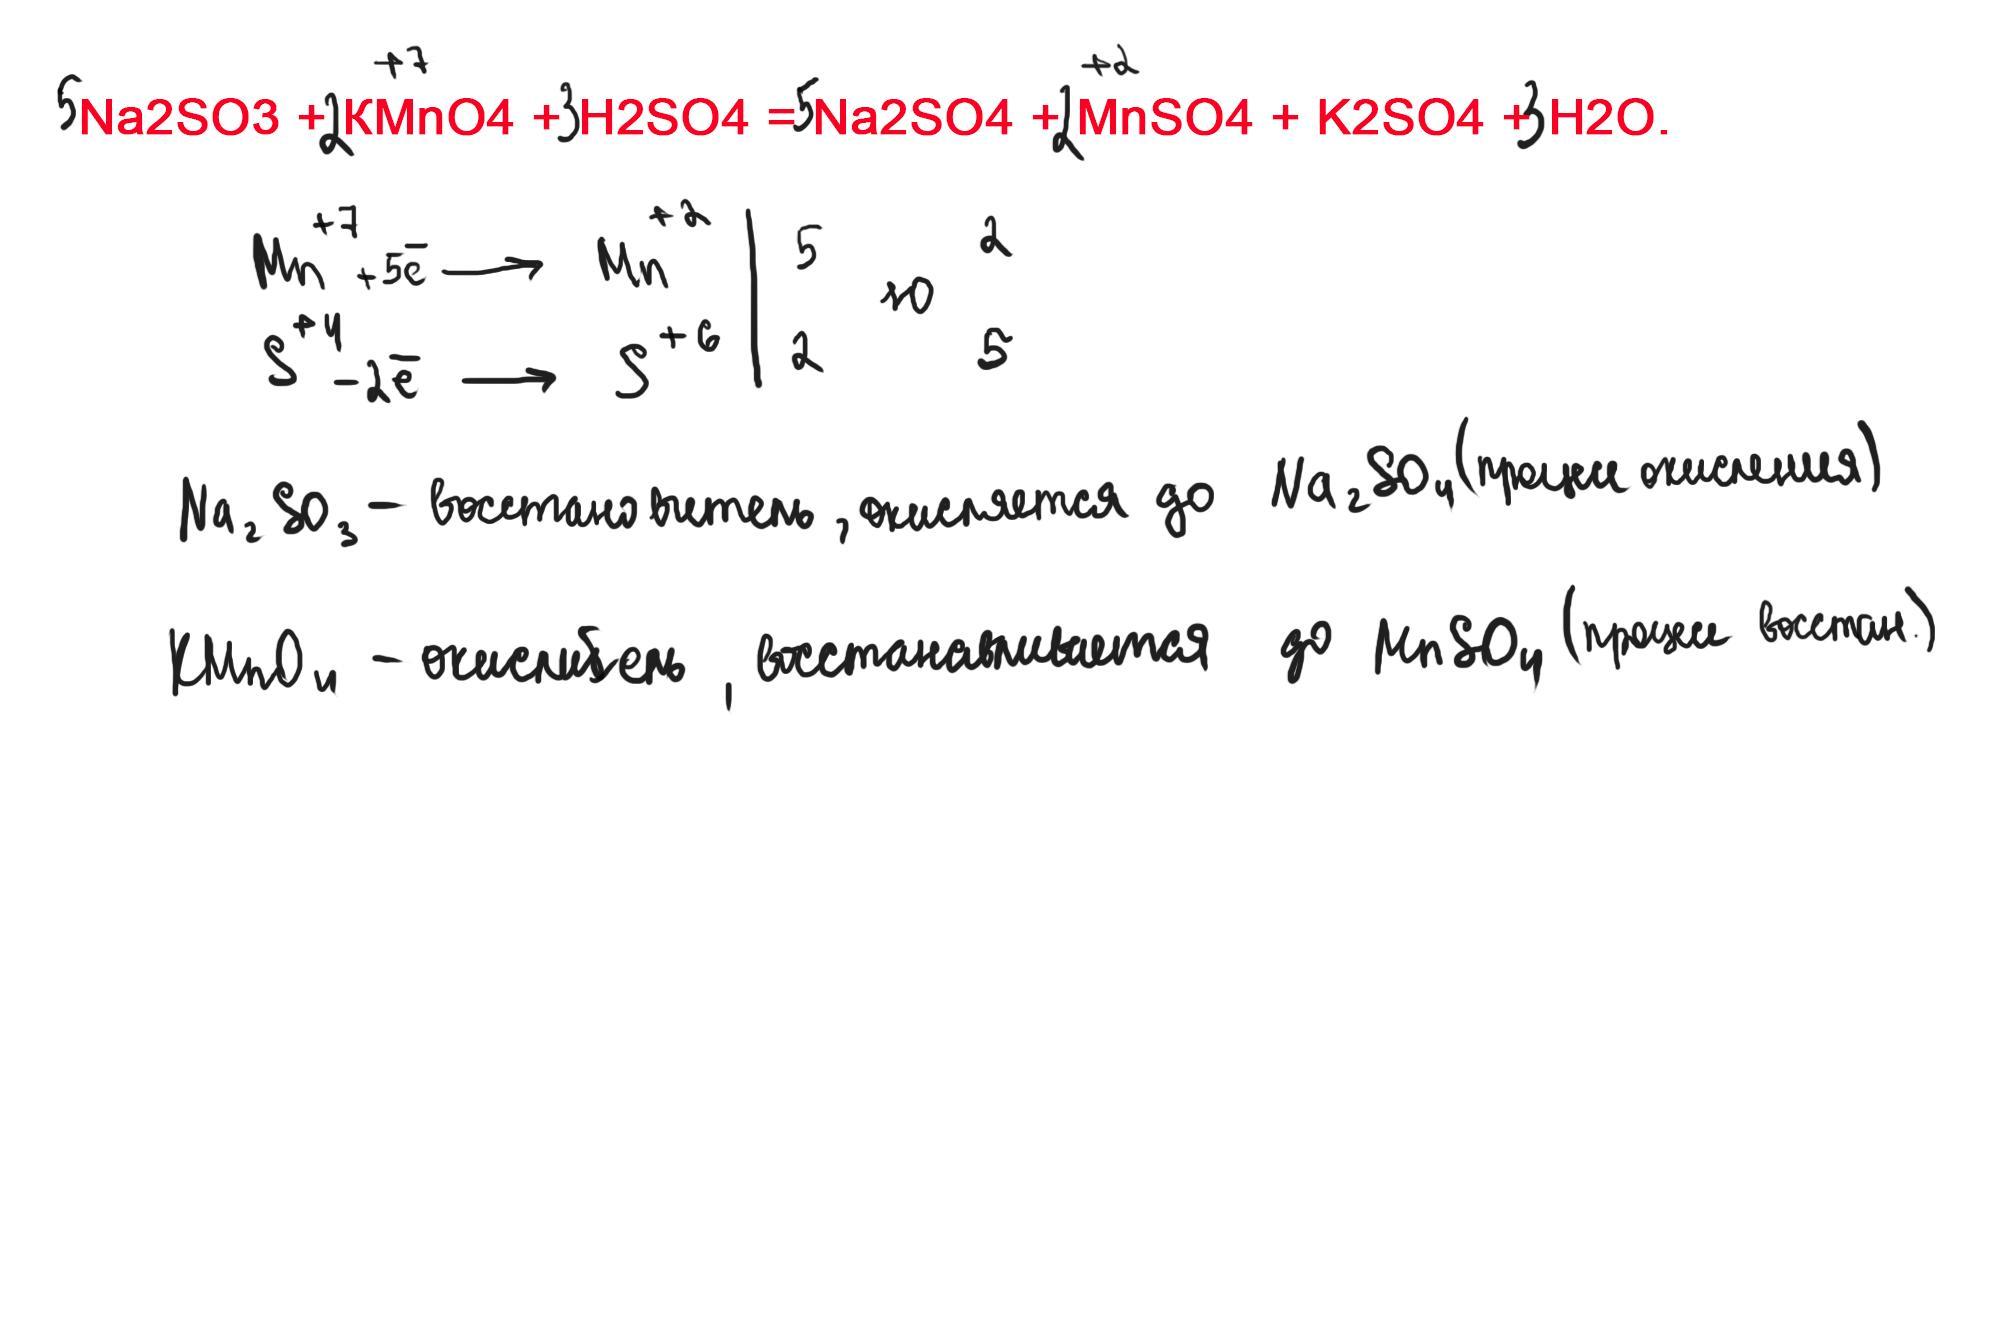 +7 +2
5Na2SO3 +2KMnO4 +3H2SO4 =5Na2SO4 +2MnSO4 + K2SO4 +3H2O.
Mn+7 +5e̅ → Mn+2 | 5 10 2
S+4 -2e̅ → S+6 | 2 5
Na2SO3 - восстановитель, окисляется до Na2SO4 (процесс окисления)
KMnO4 - окислитель, восстанавливается до MnSO4 (процесс восстан.)